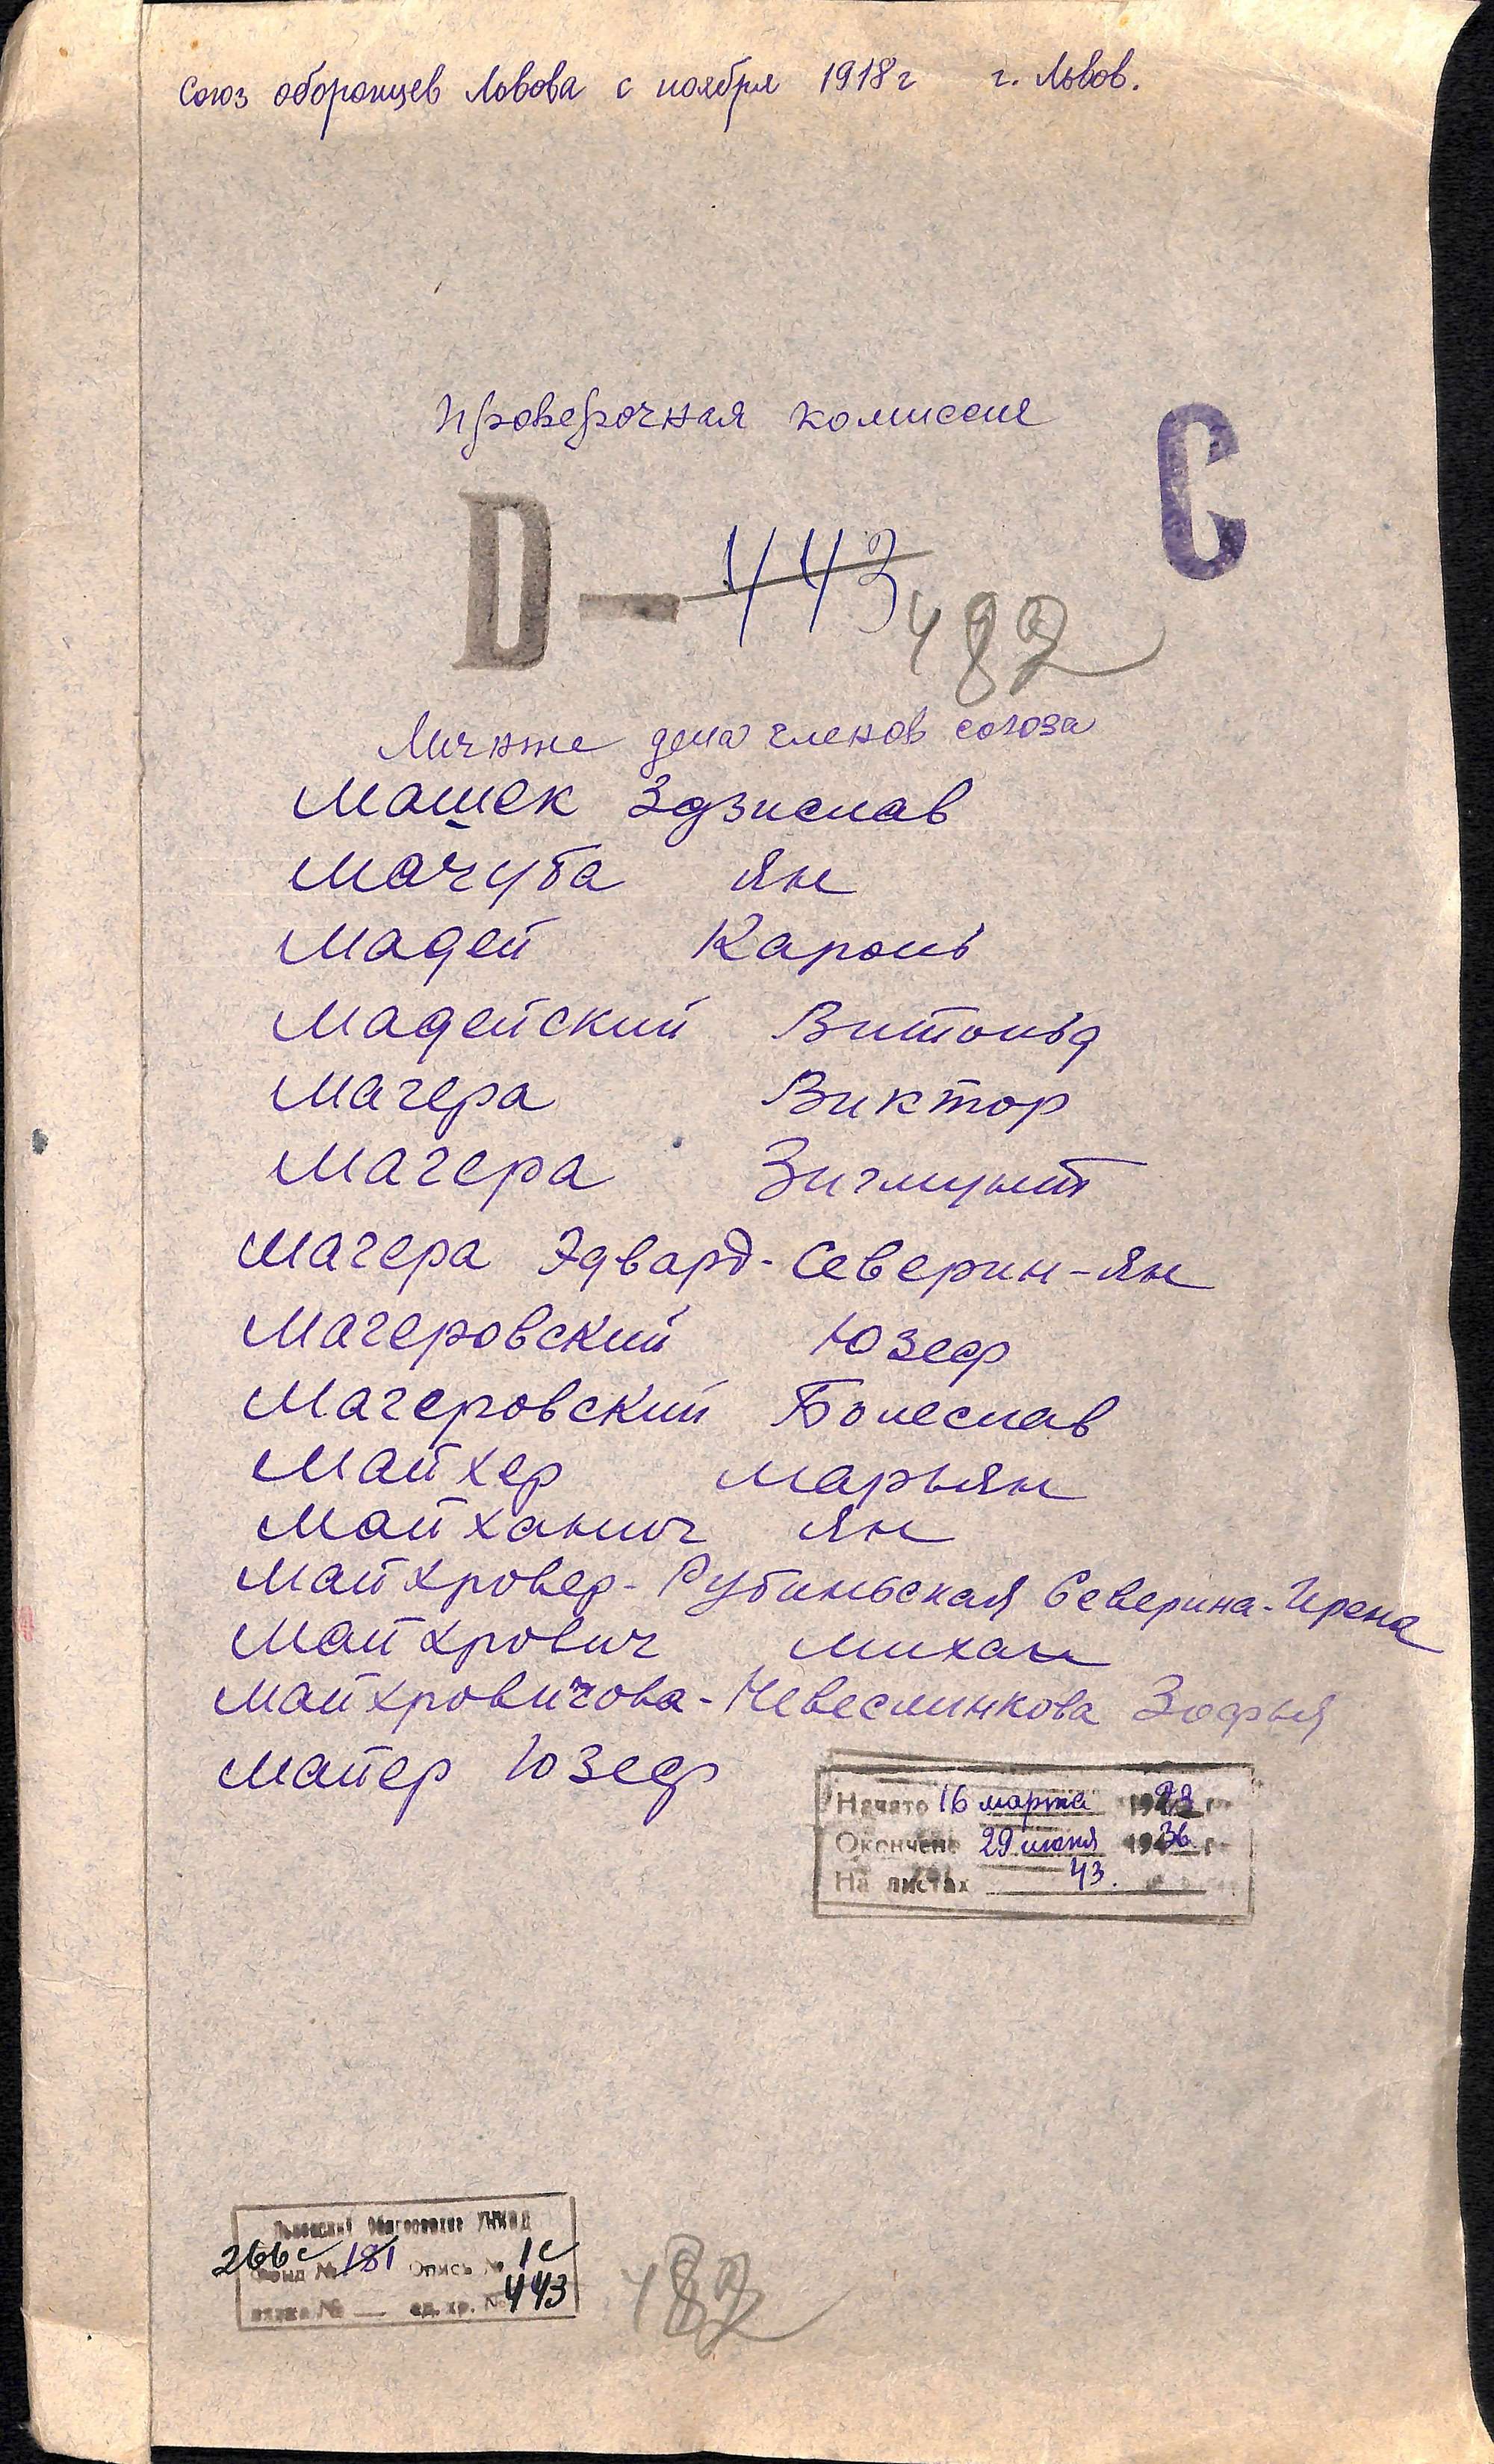 Союз оборонцев Львова с ноября 1918 г г. Львов.
Проверочная комиссия
С
D — 443 482
Личные дела членов союза
Машек Здзислав
Мачуба Ян
Мадей Кароль
Мадейский Витольд
Магера Виктор
Магера Зигмунт
Магера Эдвард-Северин-Ян
Магеровский Юзеф
Магеровский Болеслав
Майхер Марьян
Майханич Ян
Майхровер-Рубиньская Северина-Ирена
Майхрович Михал
Майхровичова- Зофья
Майер Юзеф
Начато 16 марта 19
Окончено 29 июня 1936 г.
На листах 43.
Львовский УНКВД
266с Фонд № 181 Опись № 1с
ед. хр. № 443
482